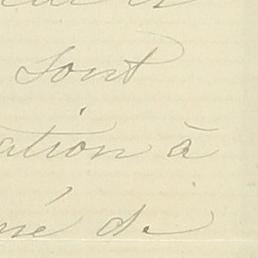 sont
ation à
né de